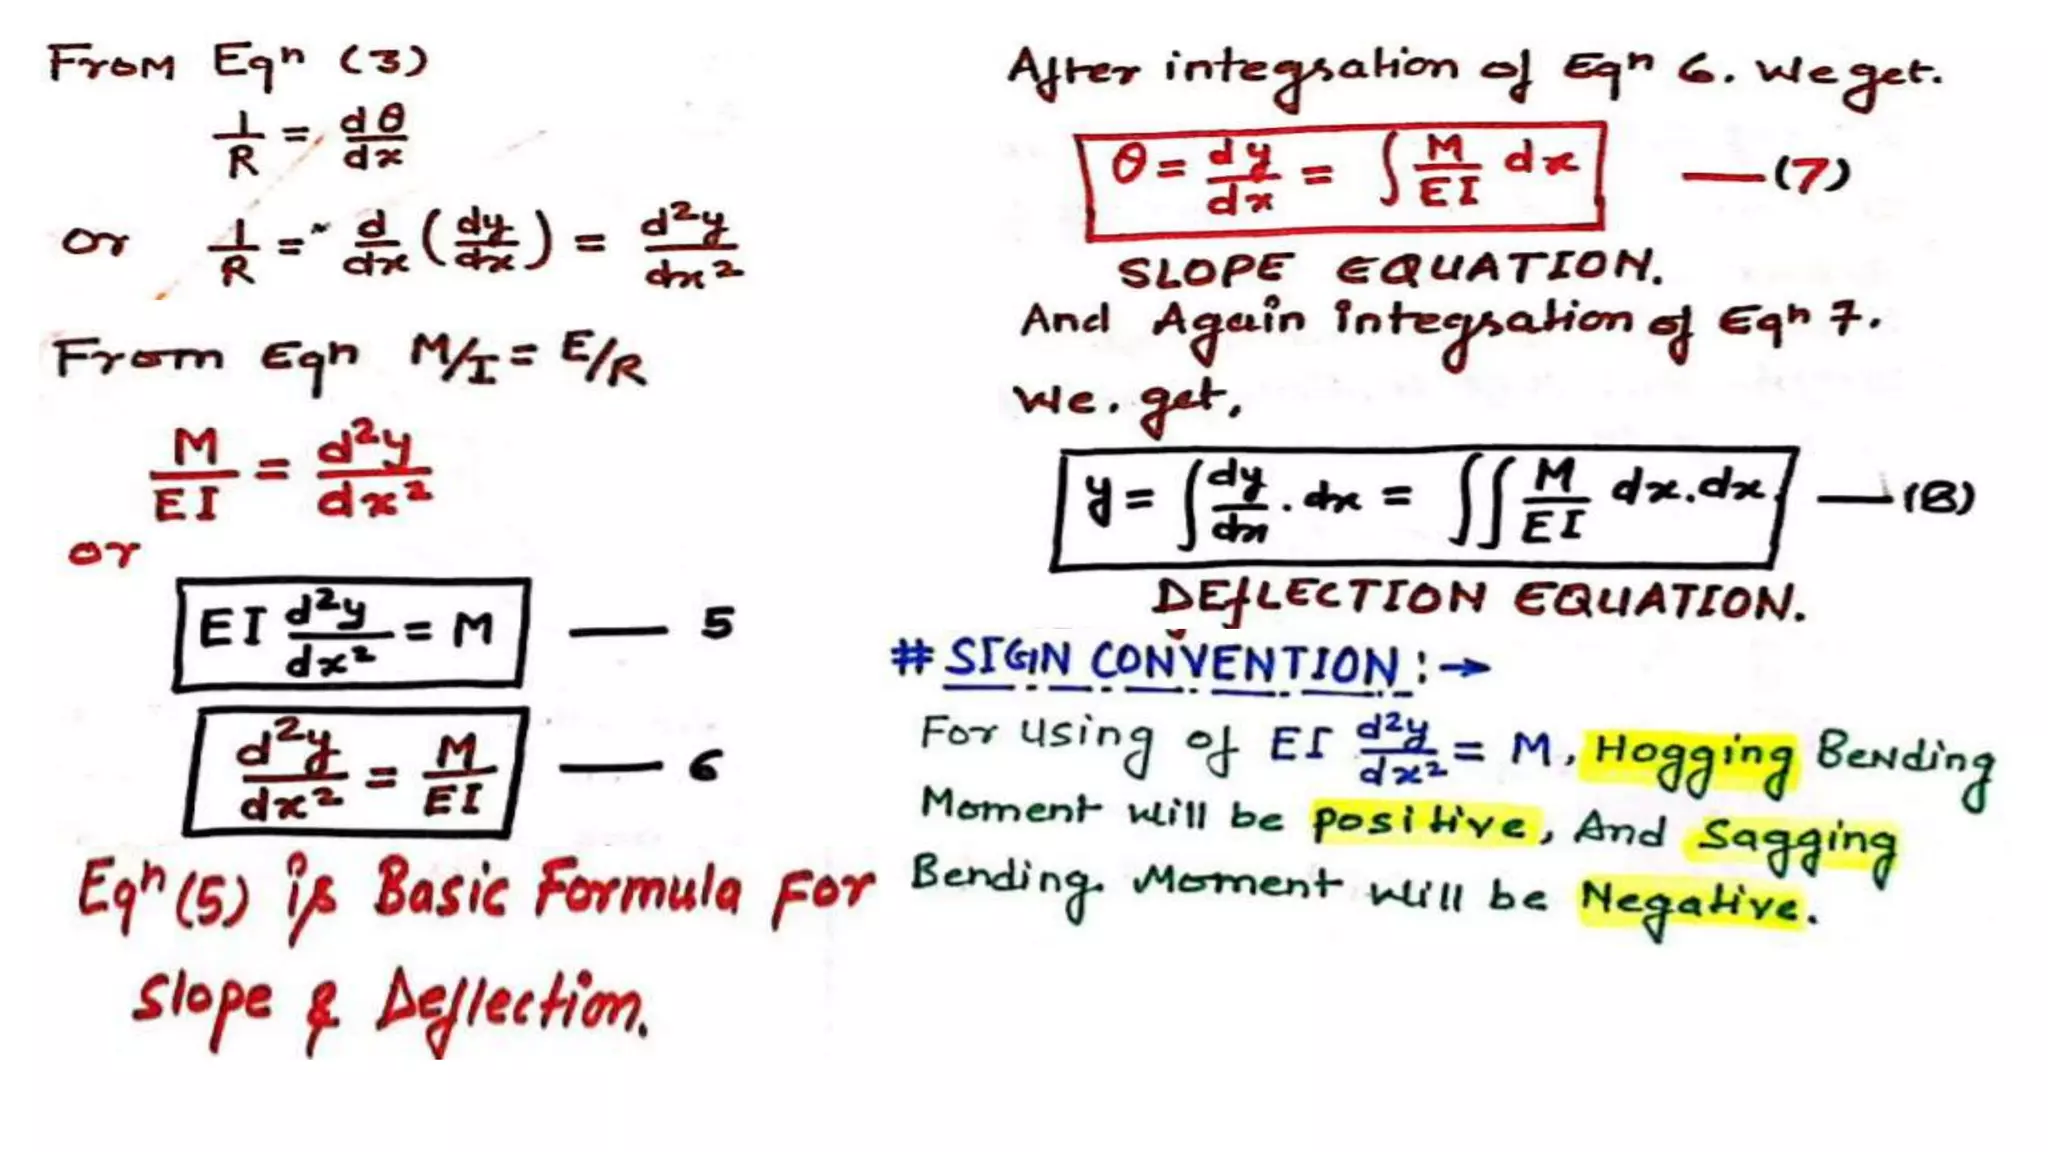 From Eqn (3)
1/R = dθ/dx
or 1/R = d/dx (dy/dx) = d²y/dx²
From Eqn M/I = E/R
M/EI = d²y/dx²
or
EI d²y/dx² = M — 5
d²y/dx² = M/EI — 6
Eqn (5) is Basic Formula For
Slope & Deflection.
After integration of Eqn 6. We get.
θ = dy/dx = ∫ M/EI dx — (7)
SLOPE EQUATION.
And Again integration of Eqn 7.
We. get,
y = ∫ dy/dx . dx = ∫∫ M/EI dx.dx — (8)
DEfLECTION EQUATION.
# SIGN CONVENTION :→
For using of EI d²y/dx² = M, Hogging Bending
Moment will be positive, And Sagging
Bending Moment will be Negative.